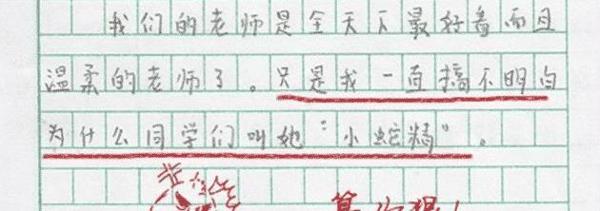 我们的老师是全天下最好看而且
温柔的老师了。只是我一直搞不明白
为什么同学们叫她“小蛇精”。